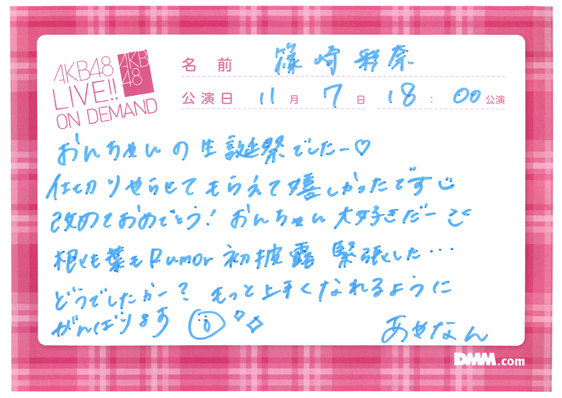 AKB48
LIVE!!
ON DEMAND
AKB
48
名前 篠崎彩奈
公演日 11月7日 18:00公演
おんちゃんの生誕祭でしたー♡
仕切りやらせてもらえて嬉しかったです
改めておめでとう！おんちゃん大好きだー
根も葉もRumor 初披露 緊張した…
どうでしたかー？ もっと上手くなれるように
がんばります
あやなん
DMM.com